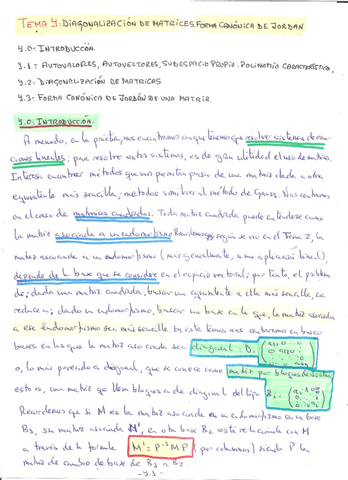 TEMA 4: DIAGONALIZACIÓN DE MATRICES. FORMA CANÓNICA DE JORDAN
4.0- INTRODUCCIÓN.
4.1- AUTOVALORES, AUTOVECTORES, SUBESPACIO PROPIO. POLINOMIO CARACTERÍSTICO.
4.2- DIAGONALIZACIÓN DE MATRICES
4.3- FORMA CANÓNICA DE JORDÁN DE UNA MATRIZ.
4.0- INTRODUCCIÓN.
A menudo, en la práctica, nos encontramos con que tenemos que resolver sistemas de ecua-
ciones lineales; para resolver estos sistemas, es de gran utilidad el uso de matrices.
Interesa encontrar métodos que nos permitan pasar de una matriz dada a otra
equivalente más sencilla; métodos similares al método de Gauss. Nos centramos
en el caso de matrices cuadradas. Toda matriz cuadrada puede entenderse como
la matriz asociada a un endomorfismo. Recordemos que, según se vio en el Tema 2, la
matriz asociada a un endomorfismo (más generalmente, a una aplicación lineal),
depende de la base que se considere en el espacio vectorial; por tanto, el problema
de: dada una matriz cuadrada, buscar una equivalente a ella más sencilla, se
reduce a: dado un endomorfismo, buscar una base en la que, la matriz asociada
a ese endomorfismo sea más sencilla. En este tema nos centraremos en buscar
bases en las que la matriz asociada sea diagonal: D=
o, lo más parecido a diagonal, que se conoce como matriz por bloques de Jordan,
esto es, una matriz que lleva bloques en diagonal del tipo
Recordemos que si M es la matriz asociada a un endomorfismo en una base
B₁, su matriz asociada M', en otra base B₂ está relacionada con M
a través de la fórmula M' = P⁻¹MP (por columnas) siendo P la
matriz de cambio de base de B₁ a B₂.